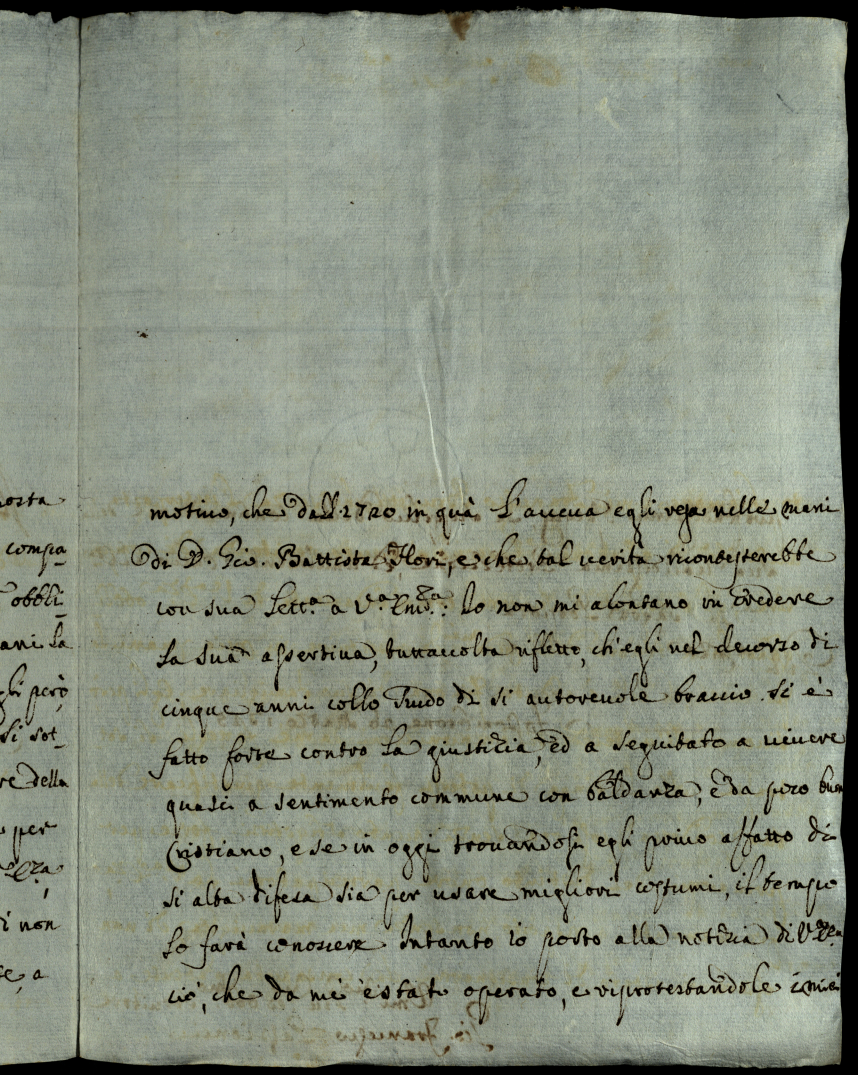 osta
compa
obbli
ani la
gli però
si sot
re della
per
i non
e, a
motiuo, che dall 1720 in quà l'aueua egli resa nelle mani
di D. Gio. Battista Flori, e che tal uerità ricontesterebbe
con sua Lett.a a V.a Em.za: Io non mi alontano in credere
la sua assertiua, tuttauolta rifletto, ch'egli nel decorso di
cinque anni collo scudo di si autoreuole braccio si è
fatto forte contro la giustizia, ed a seguitato a uiuere
quasi a sentimento commune con baldanza, e da poco buon
Cristiano, e se in oggi trouandosi egli priuo affatto di
si alta difesa sia per usare migliori costumi, il tempo
lo farà conoscere Intanto io porto alla notizia di V.
ciò, che da me è stato operato, e riprotestandole i miei